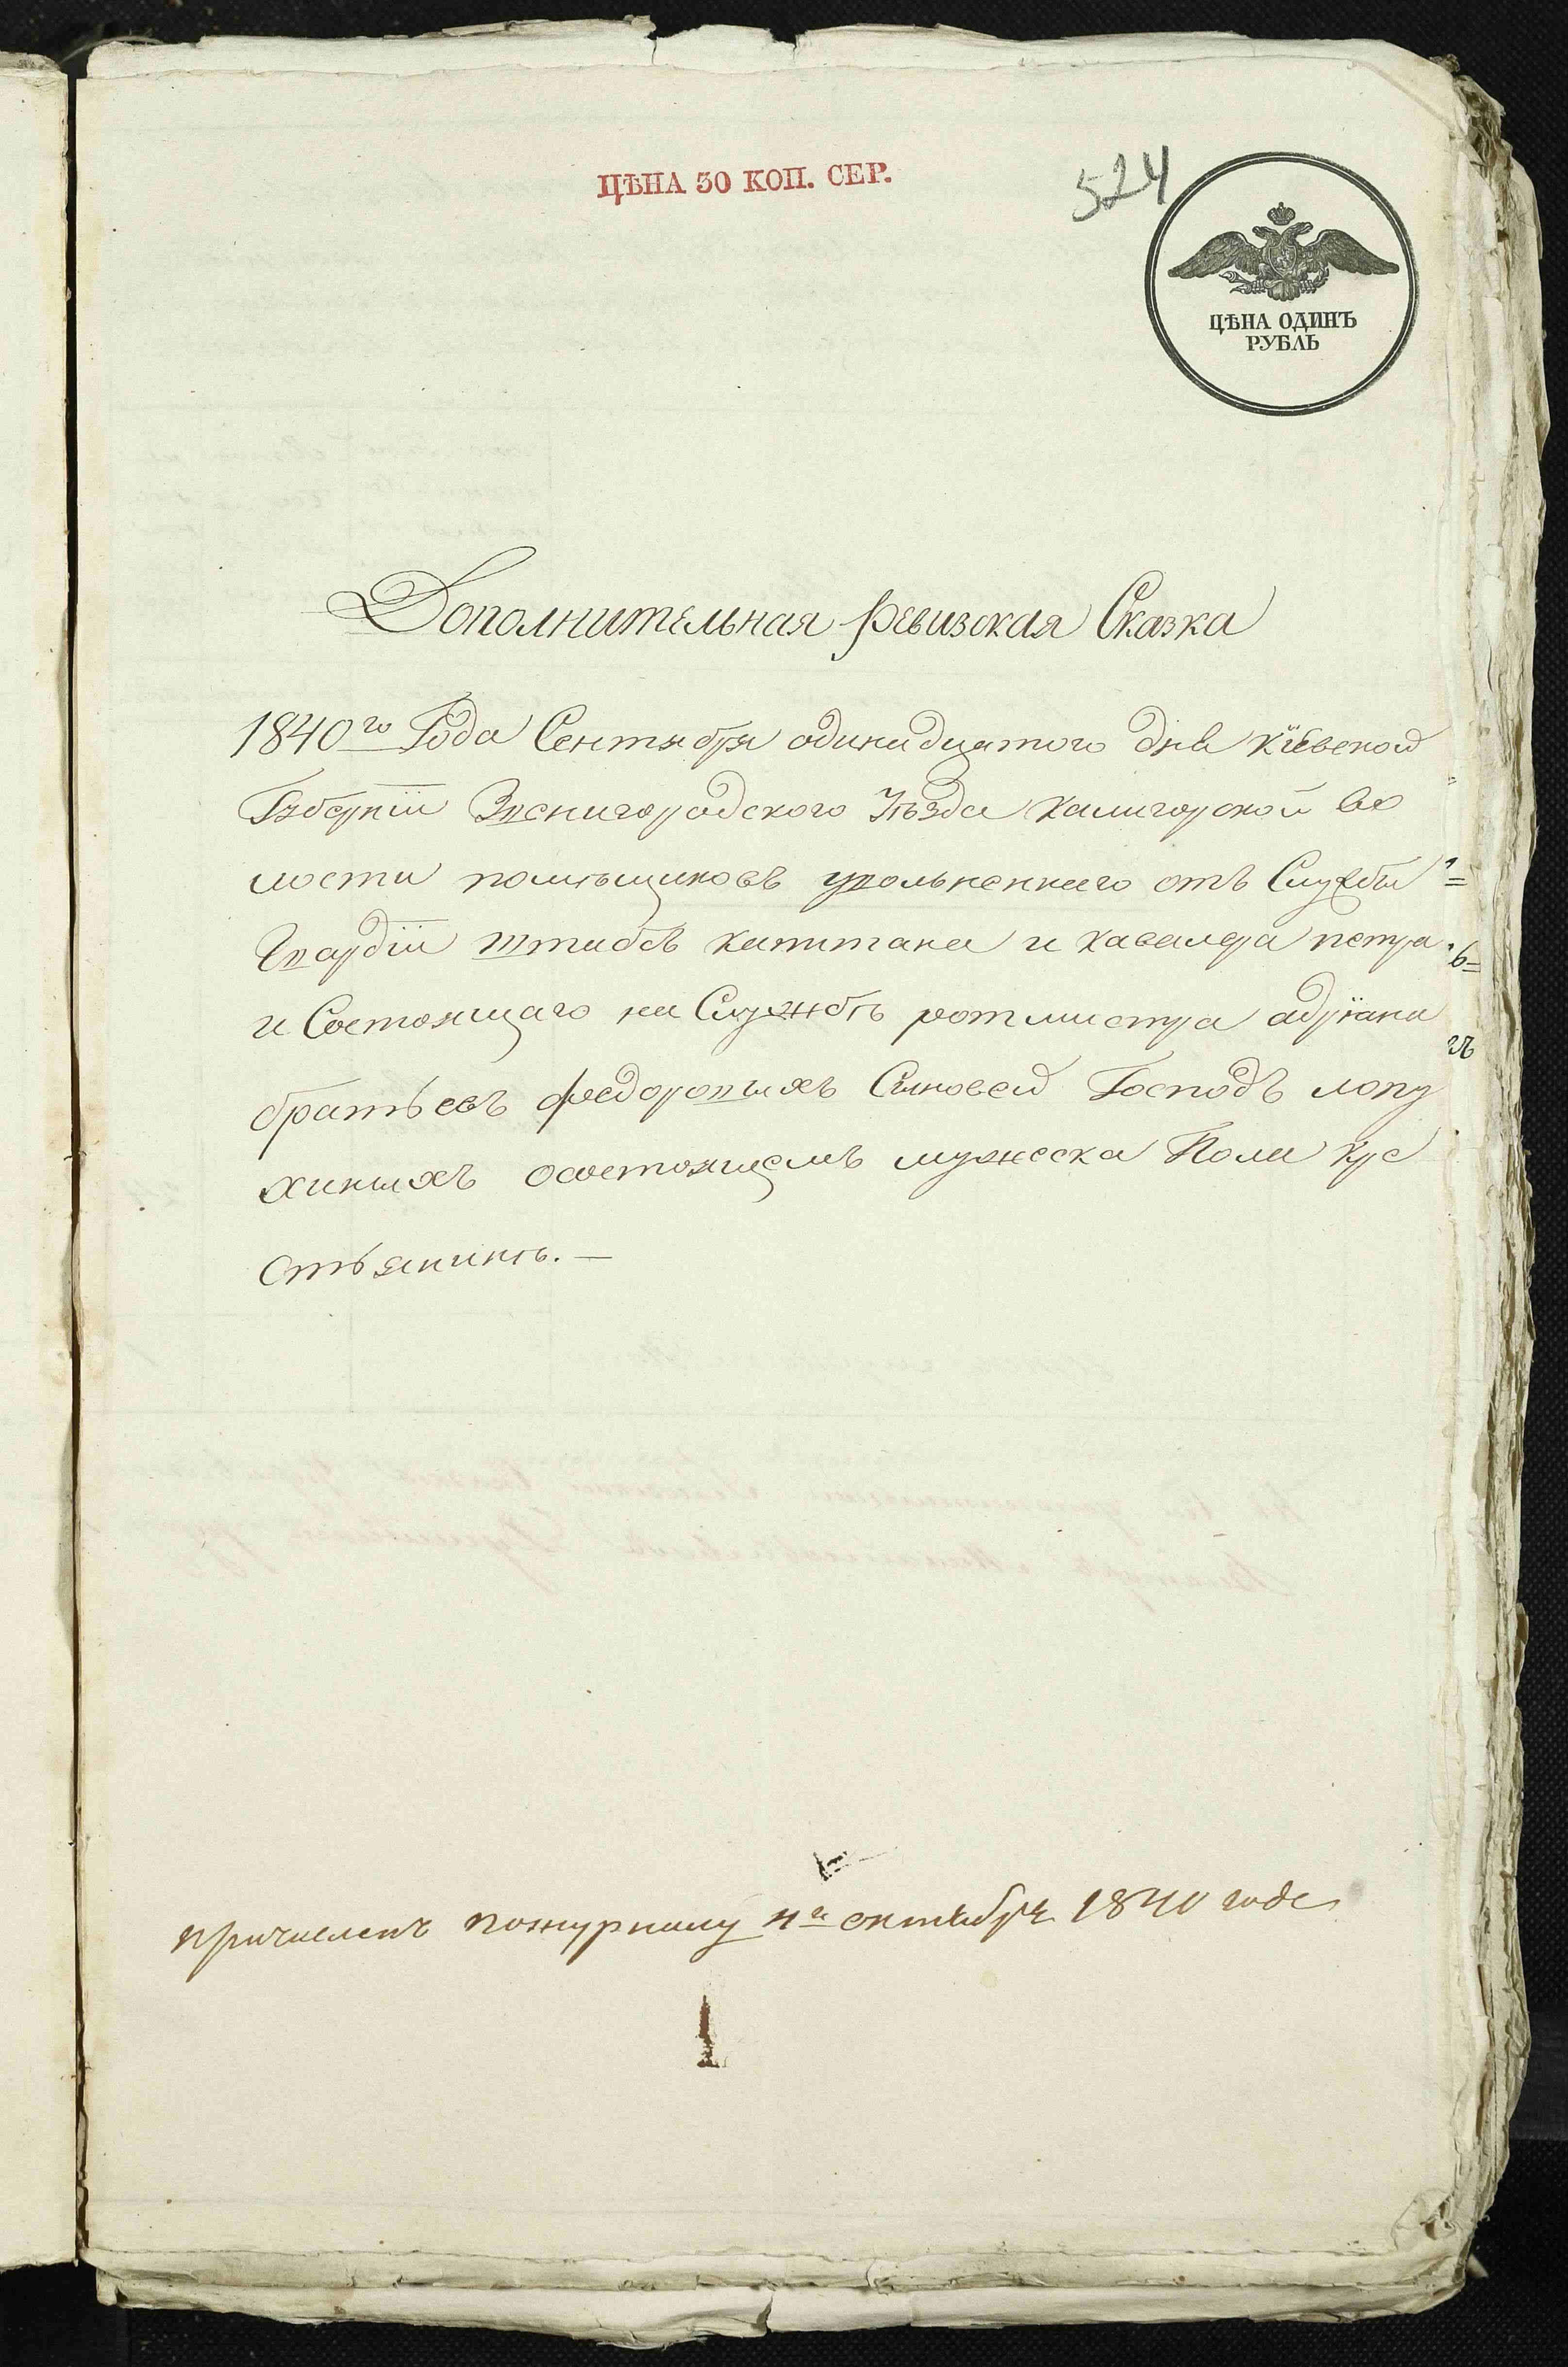 ЦѢНА 30 КОП. СЕР.
524
ЦѢНА ОДИНЪ
РУБЛЬ
Дополнительная ревизская Сказка
1840го Года Сентября одинадцатого дня Кіевской
Губернїи Звенигородского Уѣзда Калигорской во
лости помѣщиковъ уволненнаго отъ Службы
Гвардїи Штабсъ Капитана и Кавалера петра
и Состоящаго на Службѣ ротмистра адрїана
братьевъ федоровыхъ Сыновей Господъ лопу
хиныхъ осостоящемъ мужеска Пола кре
стьянинѣ.—
причисленъ пожурналу 4го октября 1840 года